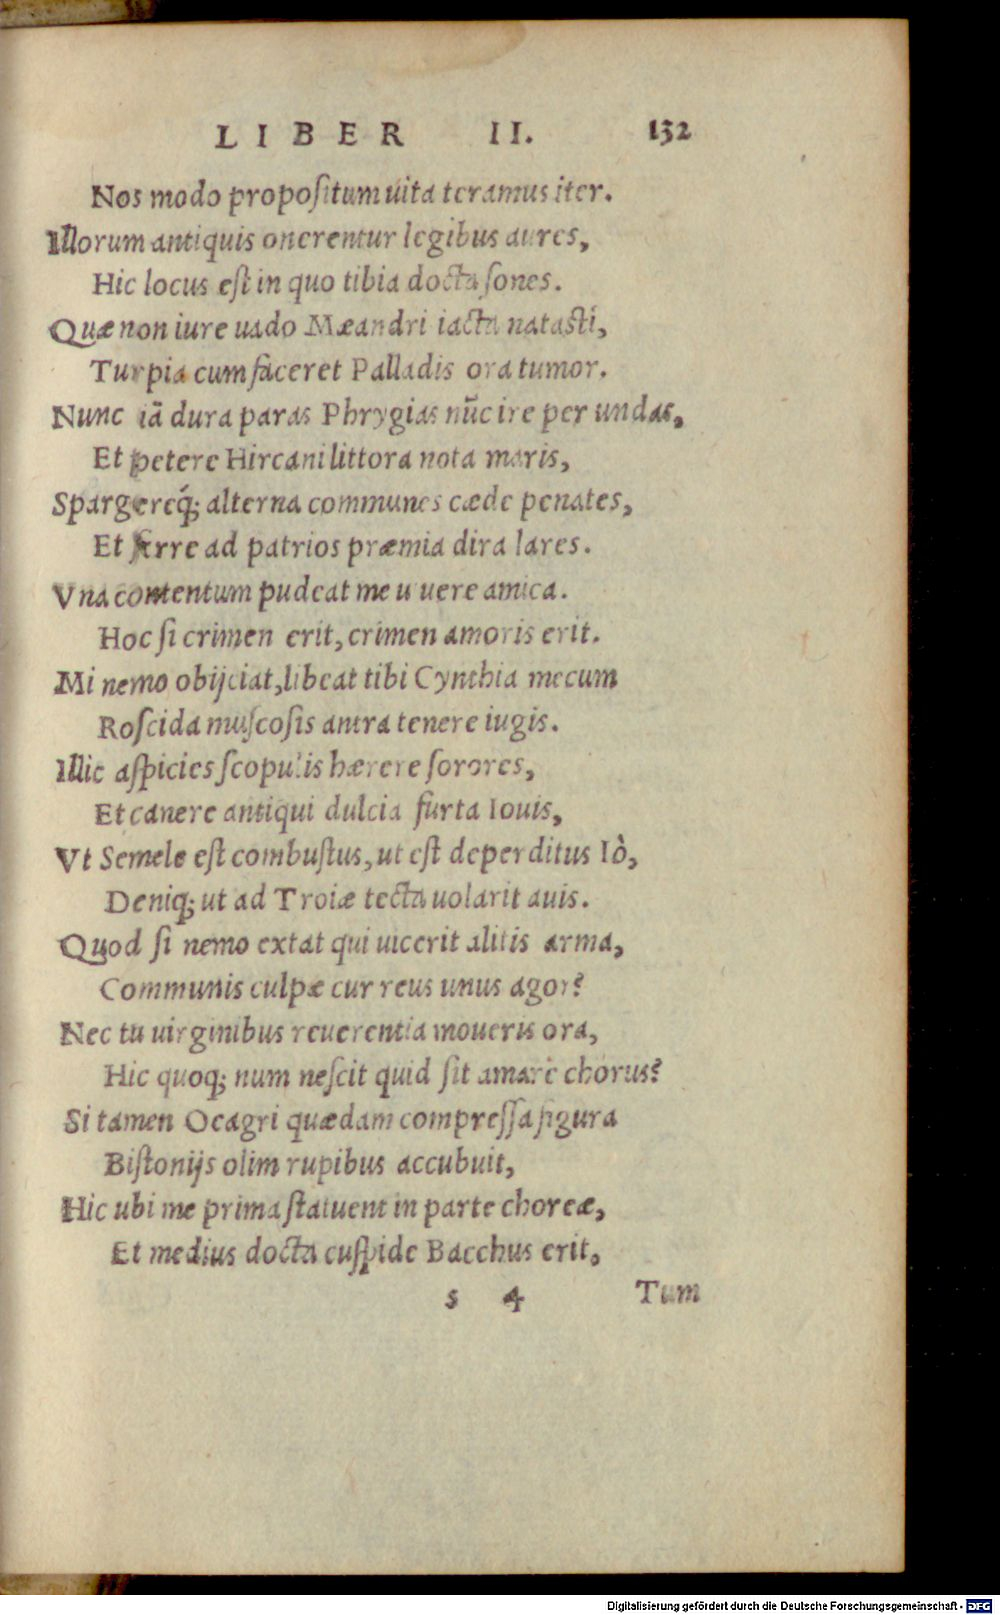 LIBER II. 132
Nos modo propoſitum uita teramus iter.
Illorum antiquis onerentur legibus aures,
Hic locus eſt in quo tibia docta ſones.
Quæ non iure uado Mæandri iacta nataſti,
Turpia cum faceret Palladis ora tumor.
Nunc iā dura paras Phrygias nūc ire per undas,
Et petere Hircani littora nota maris,
Spargereq́; alterna communes cæde penates,
Et ferre ad patrios præmia dira lares.
Vna contentum pudeat me uiuere amica.
Hoc ſi crimen erit, crimen amoris erit.
Mi nemo obijciat, libeat tibi Cynthia mecum
Roſcida muſcoſis antra tenere iugis.
Illic aſpicies ſcopulis hærere ſorores,
Et canere antiqui dulcia furta Iouis,
Vt Semele eſt combuſtus, ut eſt deperditus Iò,
Deniq; ut ad Troiæ tecta uolarit auis.
Quod ſi nemo extat qui uicerit alitis arma,
Communis culpæ cur reus unus agor?
Nec tu uirginibus reuerentia moueris ora,
Hic quoq; num neſcit quid ſit amare chorus?
Si tamen Oeagri quædam compreſſa figura
Biſtonijs olim rupibus accubuit,
Hic ubi me prima ſtatuent in parte choreæ,
Et medius docta cuſpide Bacchus erit,
s 4 Tum
Digitalisierung gefördert durch die Deutsche Forschungsgemeinschaft - DFG